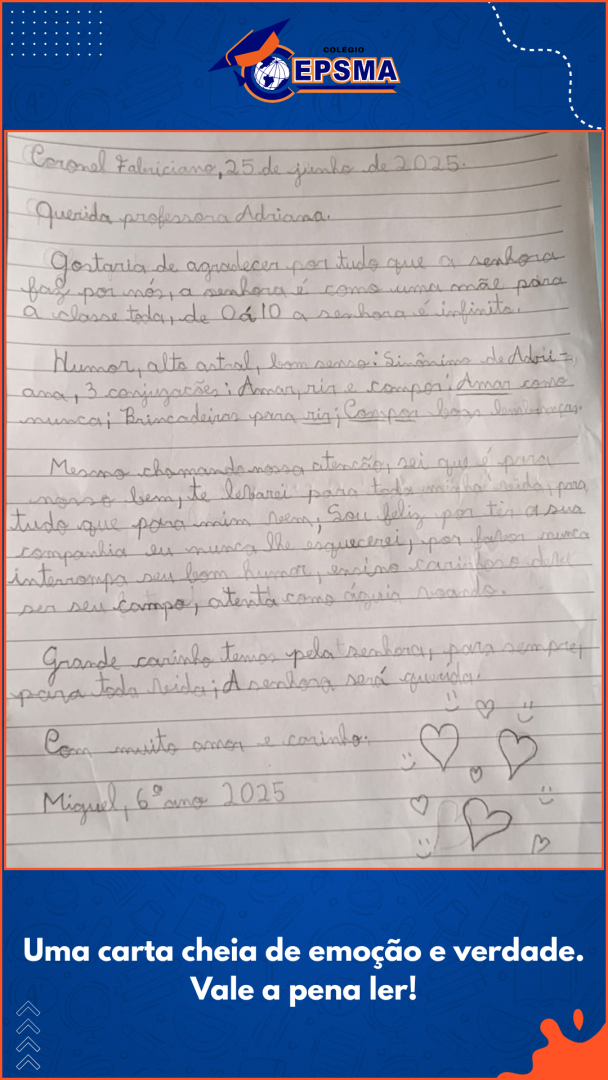 COLÉGIO
EPSMA
Coronel Fabriciano, 25 de junho de 2025.
Querida professora Adriana.
Gostaria de agradecer por tudo que a senhora
faz por nós, a senhora é como uma mãe para
a classe toda, de 0 á 10 a senhora é infinito.
Humor, alto astral, bom senso: Sinônimo de Adri=
ana, 3 conjugações: Amar, rir e compor: Amar como
nunca; Brincadeiras para rir; Compor boas lembranças.
Mesmo chamando nossa atencão, sei que é para
nosso bem, te levarei para toda minha vida, para
tudo que para mim veem, Sou feliz por ter a sua
companhia eu nunca lhe esquecerei, por favor nunca
interrompa seu bom humor, ensino carinhoso
ser seu campo, atenta como águia voando.
Grande carinho temos pela senhora, para sempre,
para toda vida; A senhora será querida.
Com muito amor e carinho.
Miguel, 6º ano 2025
Uma carta cheia de emoção e verdade.
Vale a pena ler!